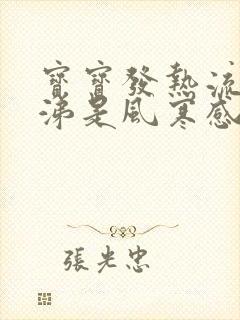 寶寶發熱流
涕是風寒感
張光忠